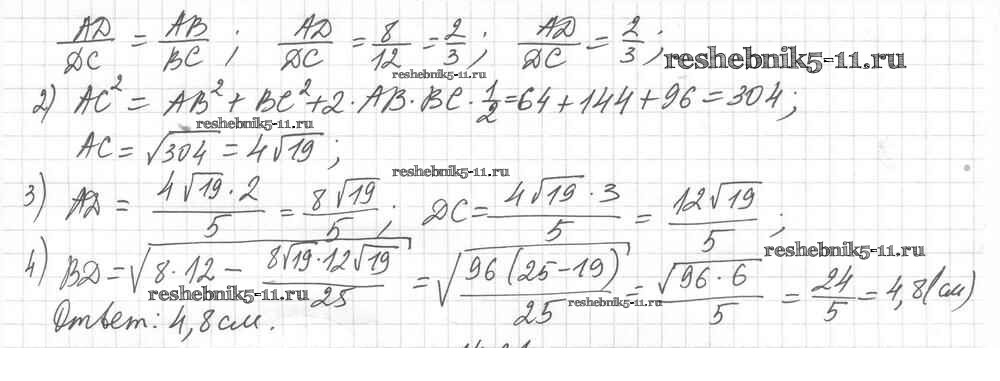 AD/DC = AB/BC ; AD/DC = 8/12 = 2/3 ; AD/DC = 2/3 ;
reshebnik5-11.ru
reshebnik5-11.ru
2) AC² = AB² + BC² + 2 · AB · BC · 1/2 = 64 + 144 + 96 = 304 ;
reshebnik5-11.ru
AC = √304 = 4√19 ;
reshebnik5-11.ru
3) AD = 4√19 · 2 / 5 = 8√19 / 5 ; DC = 4√19 · 3 / 5 = 12√19 / 5 ;
reshebnik5-11.ru
4) BD = √(8 · 12 − 8√19 · 12√19 / 25) = √(96 (25 − 19) / 25) = √(96 · 6) / 5 = 24/5 = 4,8 (см)
reshebnik5-11.ru
reshebnik5-11.ru
Ответ: 4,8 см.